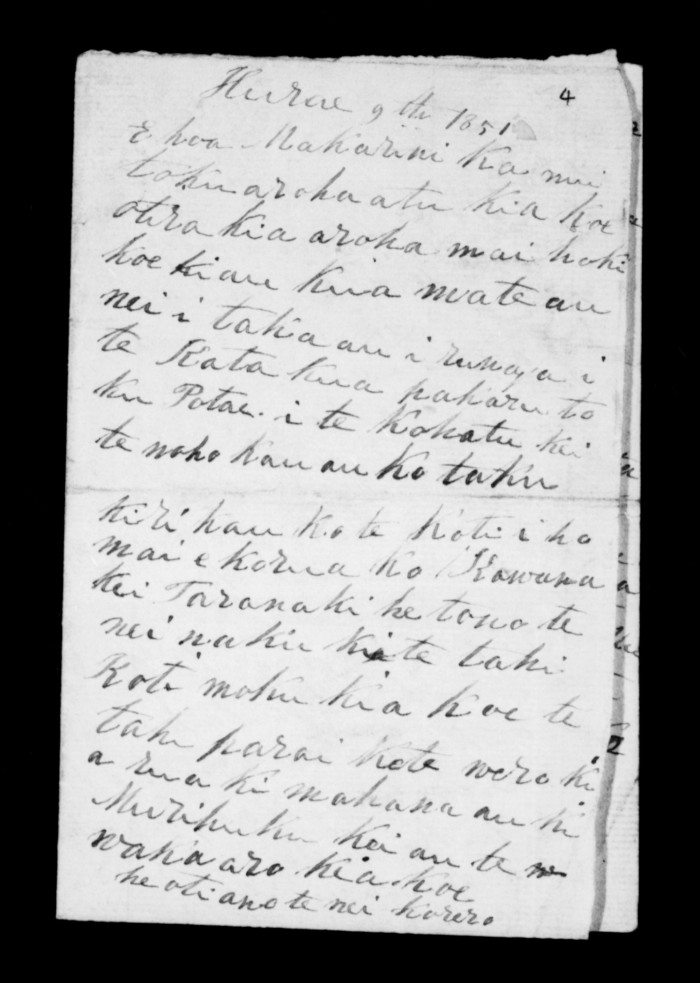 Hurae 9th 1851
4
E hoa Makarini Ka nui
toku aroha atu Kia Koe
otira Kia aroha mai hoki
koe kiau Kua mate au
nei i taka au i runga i
te Kata Kua pakaru to
ku Potae. i te Kohatu kei
te noho Kau au Ko taku
kiri hau Ko te Koti i ho
mai e Korua Ko Kawana
kei Taranaki he tono te
nei naku kite tahi
Koti moku Kia Koe te
tahi parai kete wero ki
a rua ki mahana au ki
Murihuku Kei au te w
waka aro Kia Koe
he oti ano te nei korero